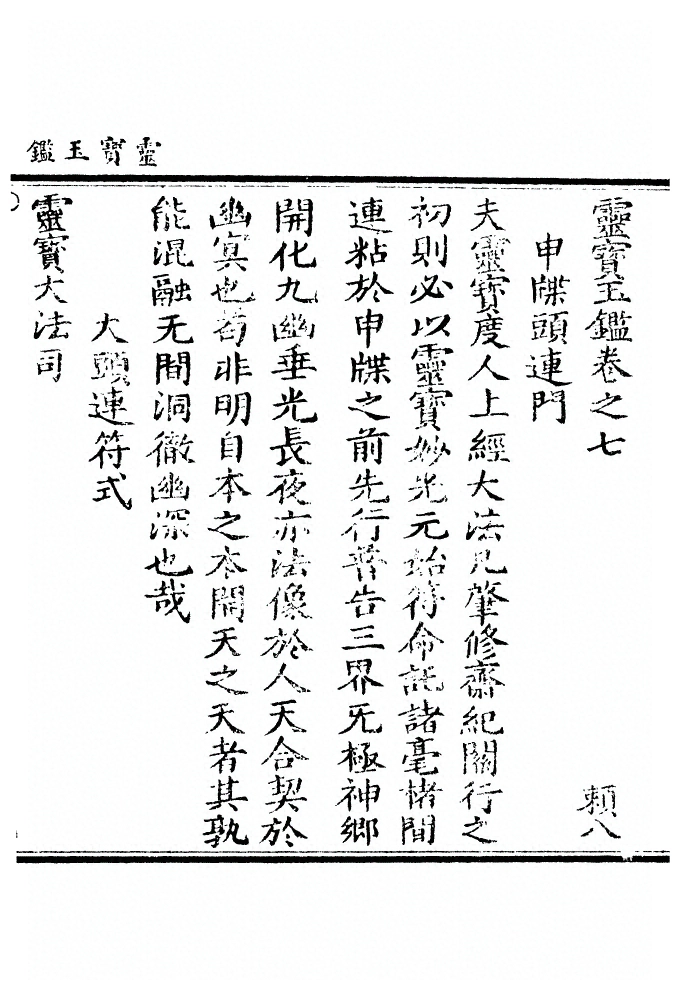 靈寳玉鑑
靈寳玉鑑卷之七 頼八
申牒頭連門
夫靈寳度人上經大法凡肇修齋紀關行之
初則必以靈寳妙光元始符命託諸毫楮間
連粘於申牒之前先行普告三界旡極神鄉
開化九幽垂光長夜亦法像於人天合契於
幽冥也苟非明自本之本開天之天者其孰
能混融无間洞徹幽深也哉
大頭連符式
靈寳大法司